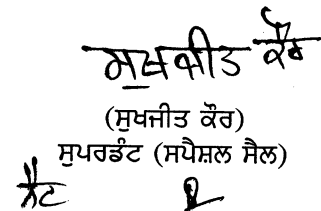 ਸੁਖਜੀਤ ਕੌਰ
(ਸੁਖਜੀਤ ਕੌਰ)
ਸੁਪਰਡੰਟ (ਸਪੈਸ਼ਲ ਸੈਲ)